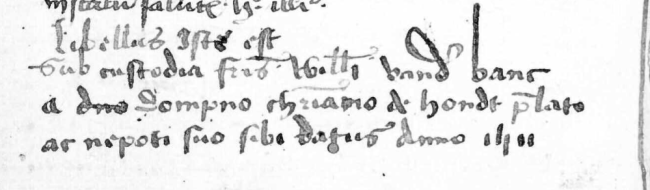 salutē
Libellus Iste est
Sub custodia fr̄is Willī vand' banc
a dno dompno chrīano de hondt p̄lato
ac nepoti suo sibi datus Anno